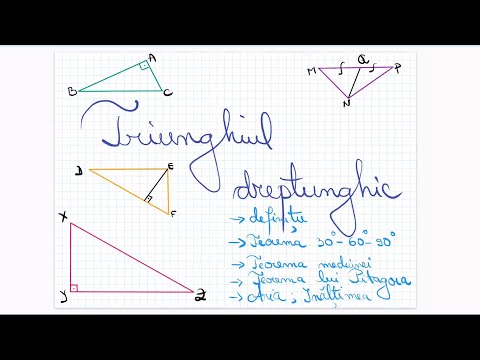 A
B
C
M
Q
P
N
Triunghiul
dreptunghic
D
E
F
→ definiție
→ Teorema 30°-60°-90°
→ Teorema medianei
→ Teorema lui Pitagora
→ Aria ; Înălțimea
X
Y
Z